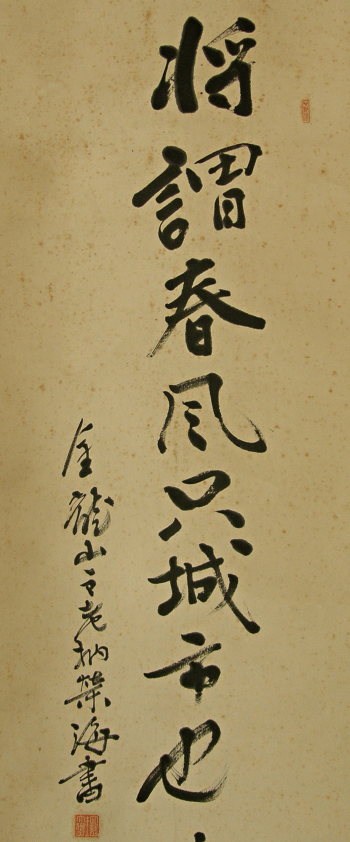 将謂春風只城市也
金龍山主老衲榮海書